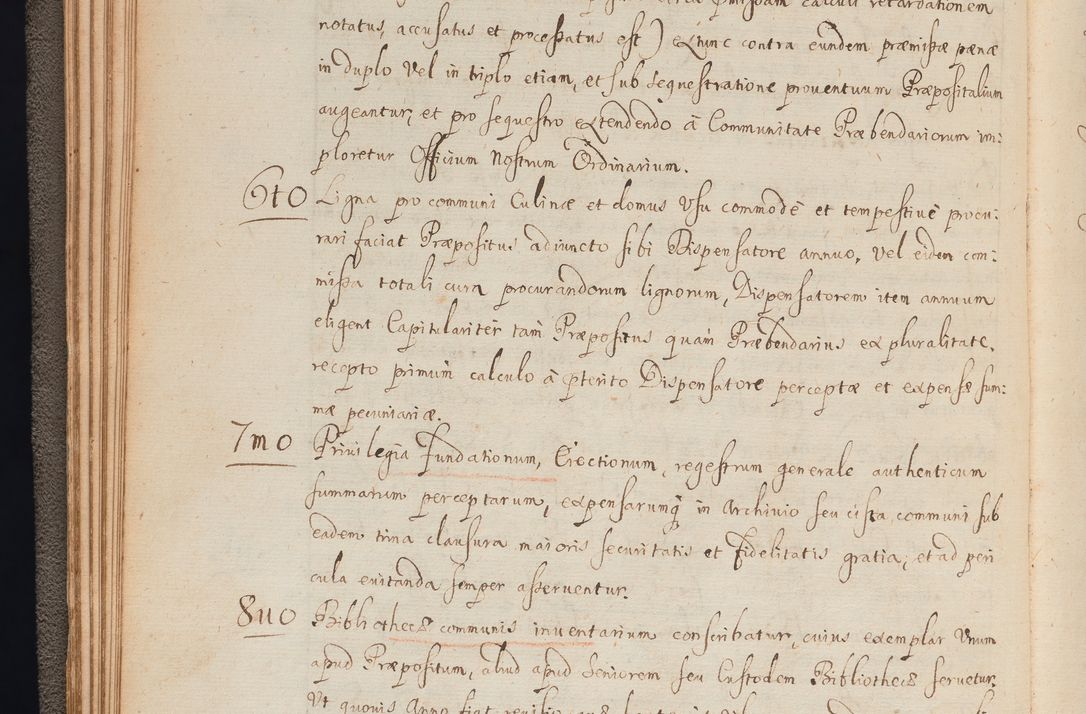 calculi retardationem
notatus, accusatus et processatus est) extunc contra eundem præmissæ pænæ
in duplo vel in triplo etiam, et sub sequestratione proventuum Præpositalium
augeantur, et pro sequestro extendendo à Communitate Præbendariorum im:
ploretur Officium Nostrum Ordinarium.
6to Ligna pro communi Culinæ et domus Usu commodè et tempestivè procu:
rari faciat Præpositus adiuncto sibi Dispensatore annuo, vel eidem com:
missa totali cura procurandorum lignorum, Dispensatorem item annuum
eligent Capitulariter tam Præpositus quam Præbendarius ex pluralitate,
recepto primum calculo à pterito Dispensatore perceptæ et expensæ sum:
mæ pecuniariæ.
7mo Privilegia Fundationum, Erectionum, regestrum generale authenticum
summarum perceptarum, expensarumq in Archivio seu cista communi sub
eadem trina clausura maioris securitatis et fidelitatis gratia, et ad peri
cula evitanda semper asserventur.
8vo Bibliothecæ communis inventarium conscribatur, cuius exemplar Unum
apud Præpositum, aliud apud Seniorem seu Custodem Bibliothecæ servetur.
Ut quovis Anno fiat